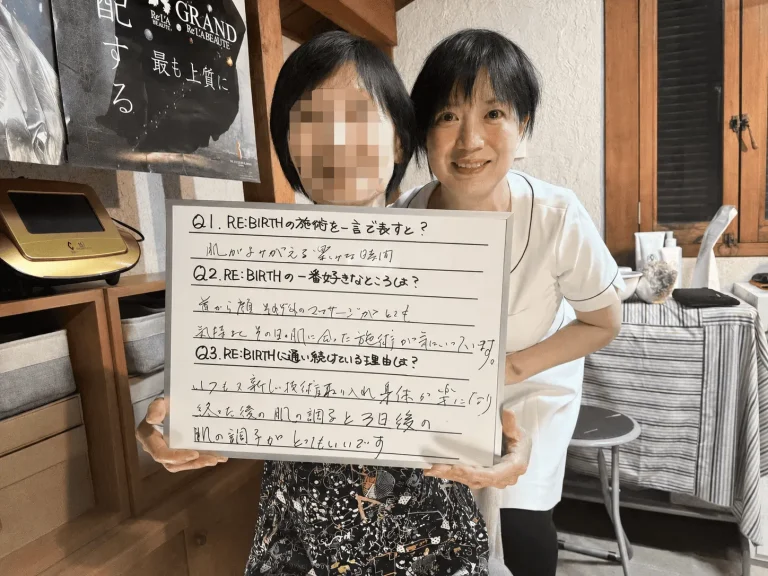 配する
Re'LA
BEAUTÉ
GRAND
Re'LABEAUTE
最も上質に
Q1. RE:BIRTHの施術を一言で表すと?
肌がよみがえる 時間
Q2. RE:BIRTHの一番好きなところは?
首から顔 のマッサージがとても
気持よく その日の肌に合った施術が気にいっています。
Q3. RE:BIRTHに通い続けている理由は?
いつも新しい技術を取り入れ身体が楽になり
終った後の肌の調子と3日後の
肌の調子がとてもいいです